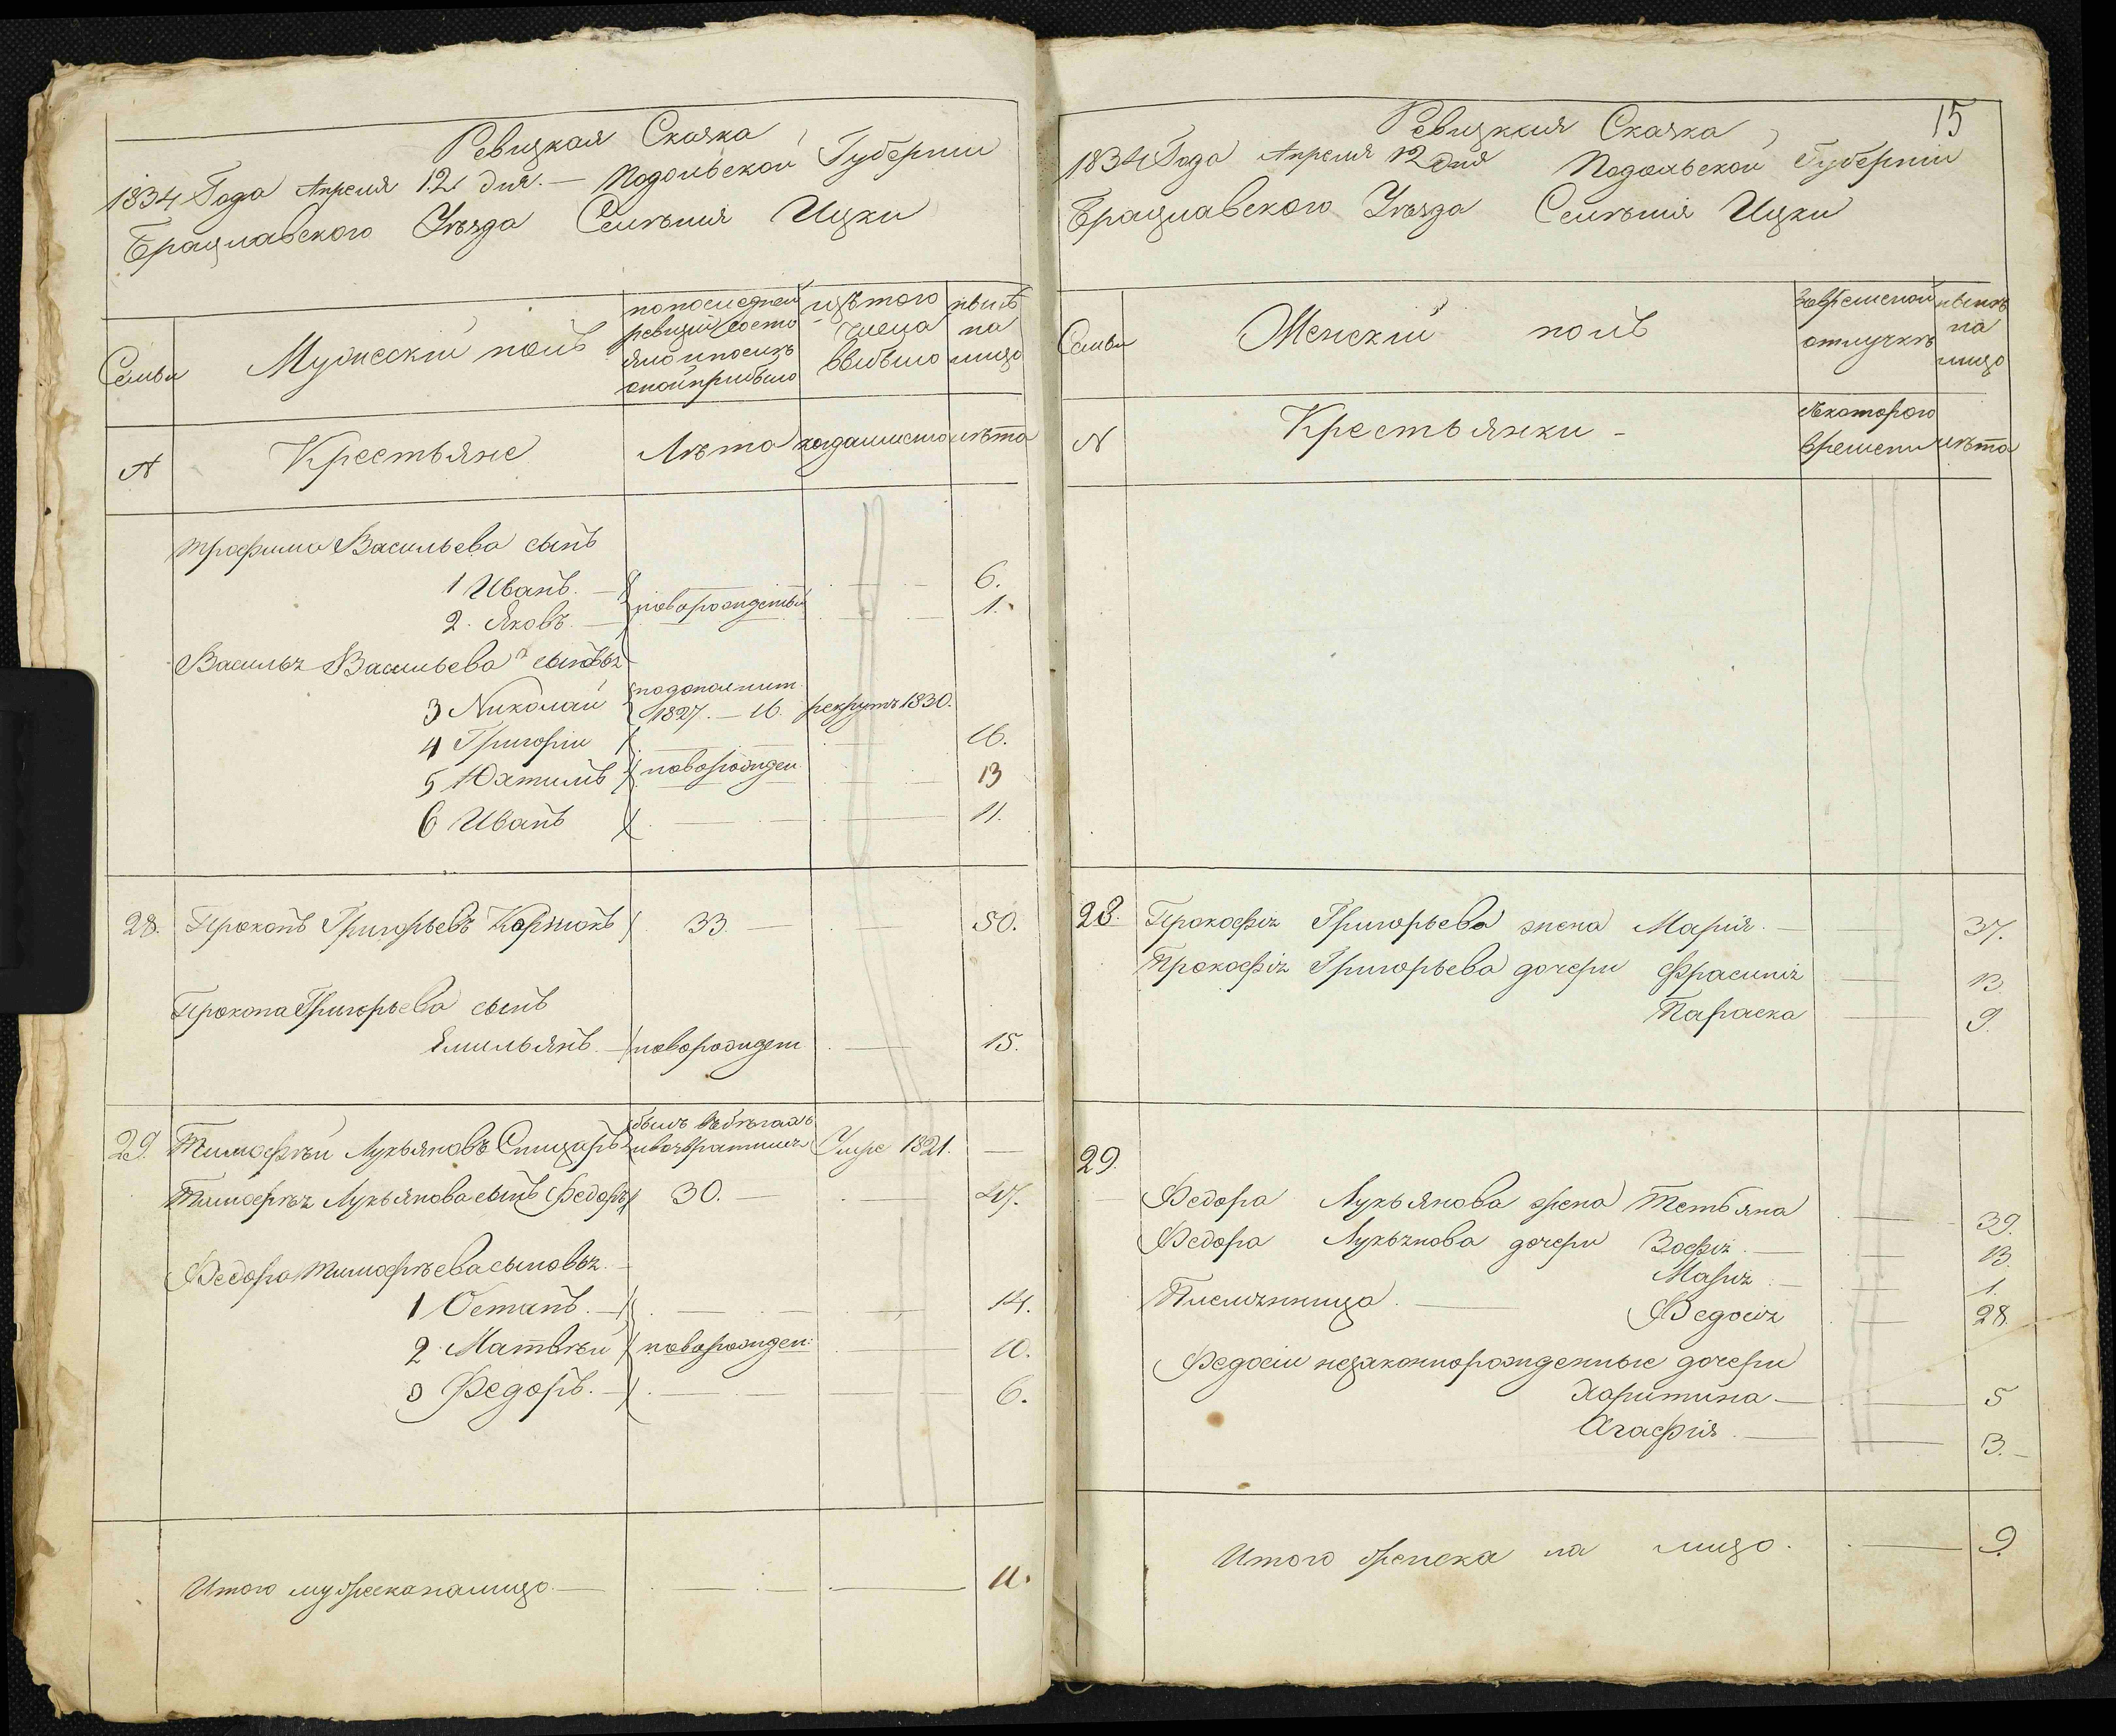 Ревизкая Сказка
1834 Года Апреля 12 дня.— Подольской Губернии
Брацлавского Уѣзда Селѣния Ицки
Семьи
Мужескій полъ
по последней
ревизіи состо
яло и после
оной прибыло
изъ того
числа
выбыло
ныне
на
лицо
N
Крестьяне
Лѣта
когда именно
лѣта
Трафима Васильева сынъ
1 Иванъ. — 6.
2. Яковъ. — новорождены 1.
Василья Васильева сыновья
3 Николай по дополнит. 1827. — 16. рекрутъ 1830.
4 Григорiй 16.
5 Юхтимъ новорожден. 13
6 Иванъ 11.
28. Прокопъ Григорьевъ 33 — 50.
Прокопа Григорьева сынъ
Емильянъ — новорожден 15.
29. Тимофѣй Лукьяновъ Спицаръ былъ въ бѣгахъ и возвратился Умре 1821. —
Тимофѣя Лукьянова сынъ Федоръ 30. — 47.
Федора Тимофѣева сыновья.
1 Остапъ. — 14.
2 Матвѣй новорожден: 10.
3 Федоръ. — 6.
Итого мужеска налицо — 11.
15
Ревизкая Сказка
1834 Года Апреля 12 дня Подольской Губерніи
Брацлавского Уѣзда Селѣнія Ицки
Семьи
Женскій полъ
Во временой
отлучкѣ
ныне
на
лицо
N
Крестьянки —
с которого
времени
лѣта
28. Прокофія Григорьева жена Марія. — 37.
Прокофія Григорьева дочери Фрасинія 13
Параска 9.
29.
Федора Лукьянова жена Тетьяна 39.
Федора Лукьянова дочери Зофія. — 13.
Марія — 1.
Племянница. — Федосія 28.
Федосіи незаконнорожденные дочери
Харитина — 5
Агафія. — 3. —
Итого женска на лицо. — 9